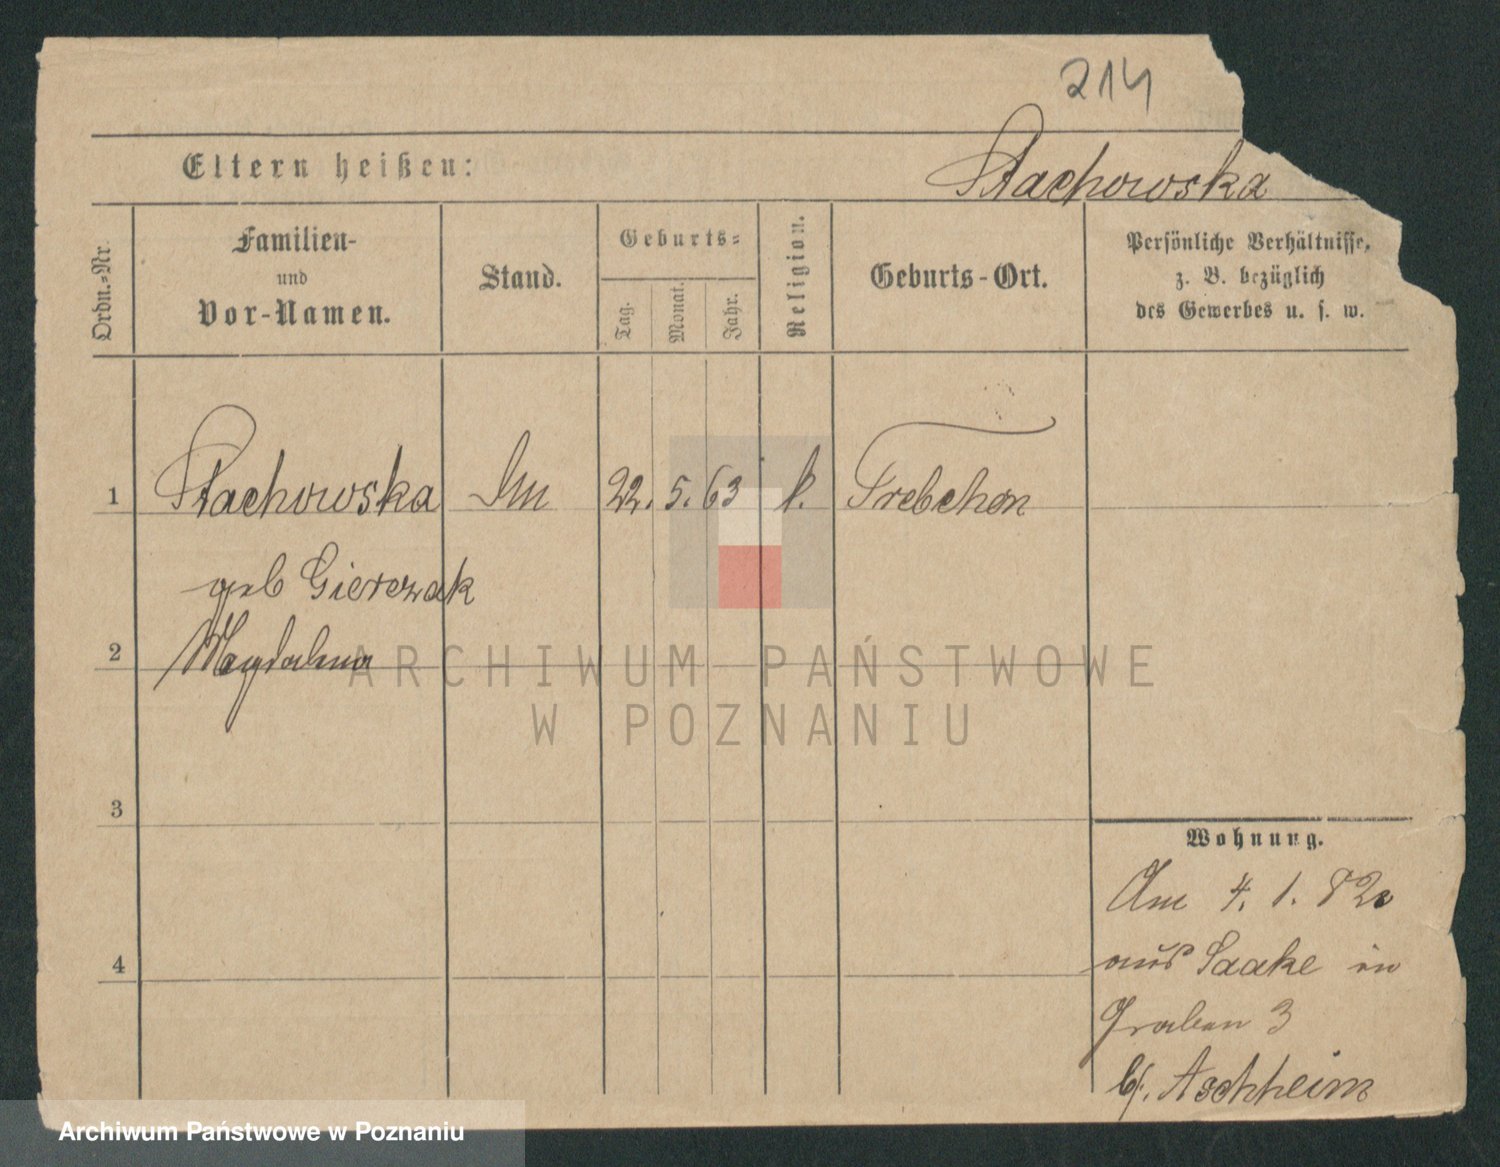 214
Eltern heißen:
Stachowska
Ordn.-Nr.
Familien-
und
Vor-Namen.
Stand.
Geburts-
Tag.
Monat.
Jahr.
Religion.
Geburts-Ort.
Persönliche Verhältnisse,
z. B. bezüglich
des Gewerbes u. s. w.
1 Stachowska 22. 5. 63 k.
geb Gierczak
2 Magdalena
3
4
Wohnung.
Am 4. 1. 82
aus Saake in
Graben 3
b/. Aschheim
ARCHIWUM PAŃSTWOWE
W POZNANIU
Archiwum Państwowe w Poznaniu